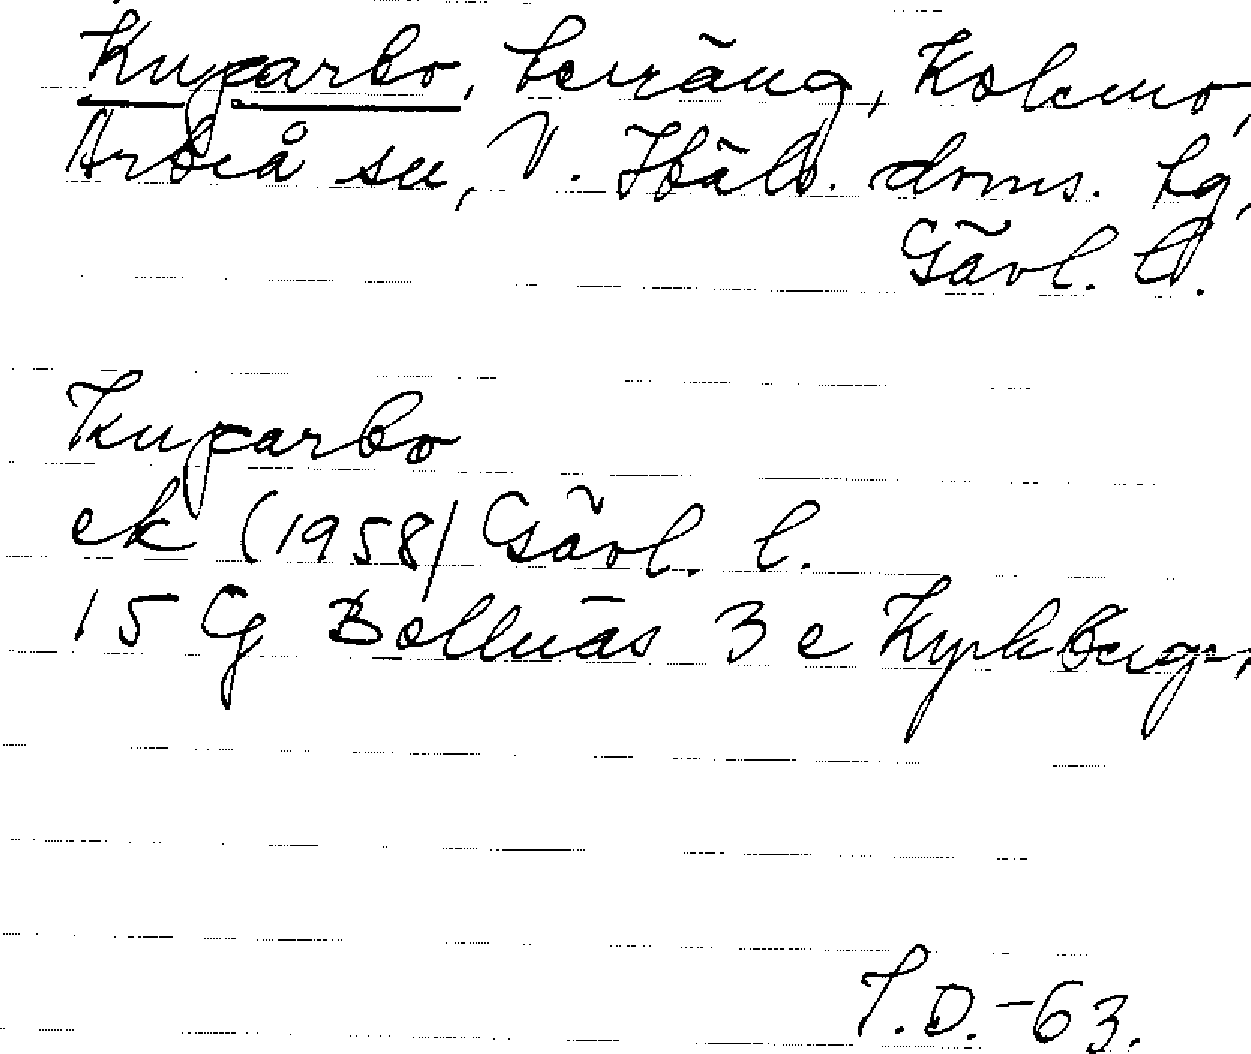 Kuparbo, terräng, Kolemo,
Arbrå sn, V. Häls. doms. tg,
Gävl. l.
Kuparbo
ek (1958) Gävl. l.
15 G Bollnäs 3 e Kyrkberg-,
T.D.-63.